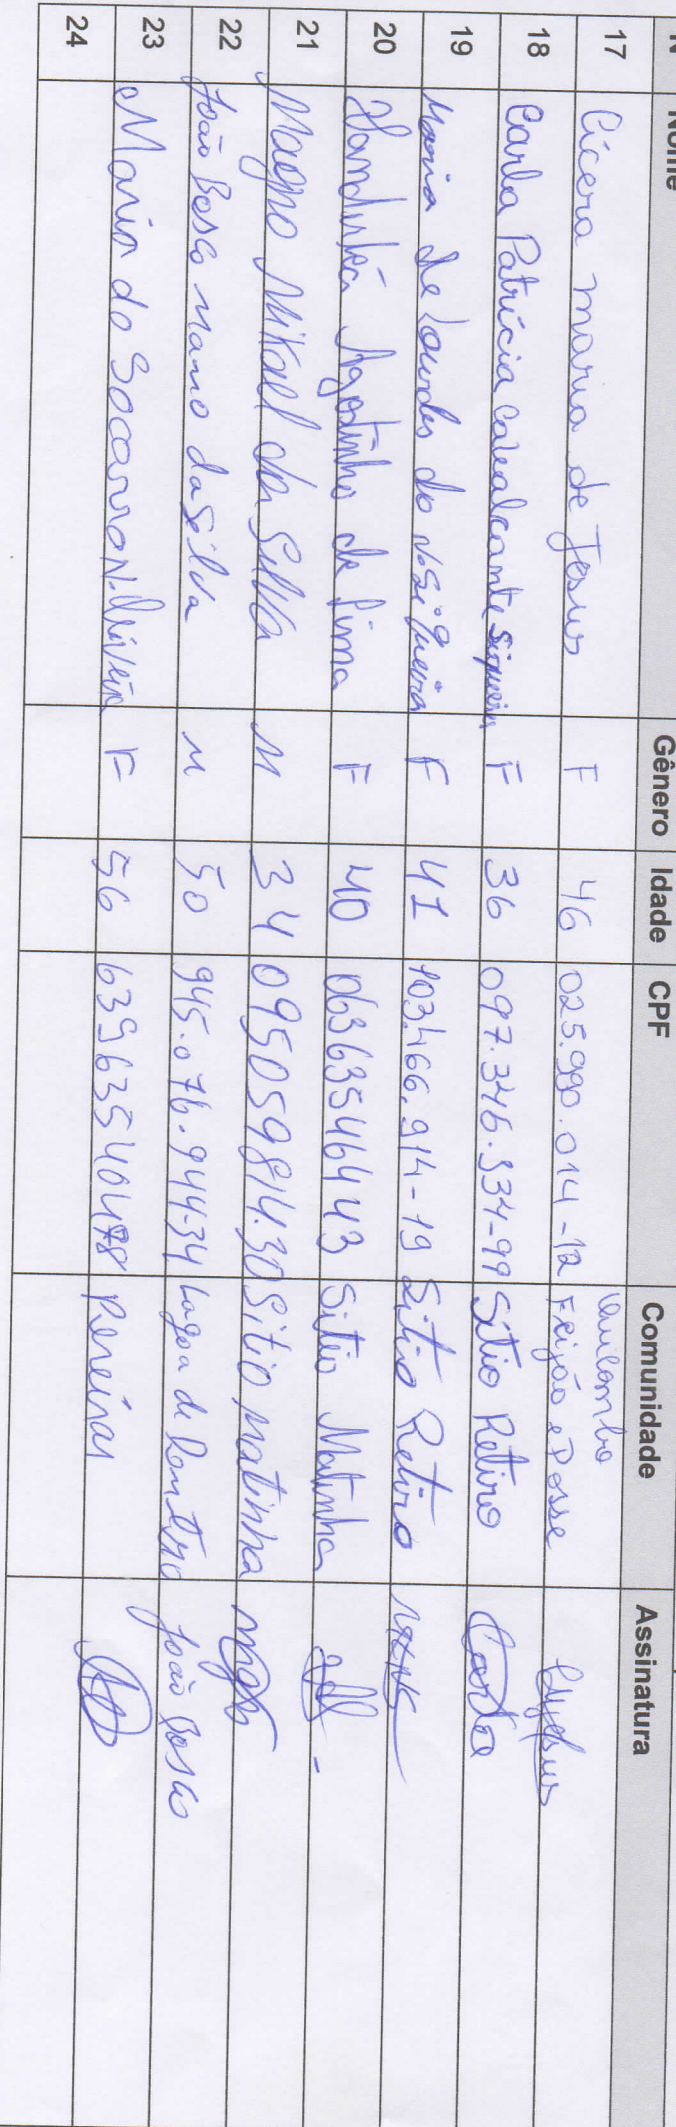 Nº Nome Gênero Idade CPF Comunidade Assinatura
17 Cícera maria de Jesus F 46 025.990.014-12 Quilombo Feijão e Posse
18 Carla Patrícia Cavalcante Siqueira F 36 097.346.334-99 Sítio Retiro Carla
19 Maria de Lourdes do N. Siqueira F 41 103.466.914-19 Sítio Retiro
20 Agostinho de Lima F 40 06363546443 Sitio Matinha
21 Magno Mikael da Silva M 34 095059814.30 Sitio Matinha
22 João Bosco mano da Silva M 50 945.076.944-34 Lagoa de João Bosco
23 Maria do Socorro N. Oliveira F 56 63963540478 Pereiras
24